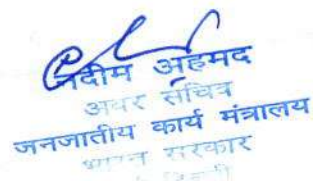 नदीम अहमद
अवर सचिव
जनजातीय कार्य मंत्रालय
भारत सरकार